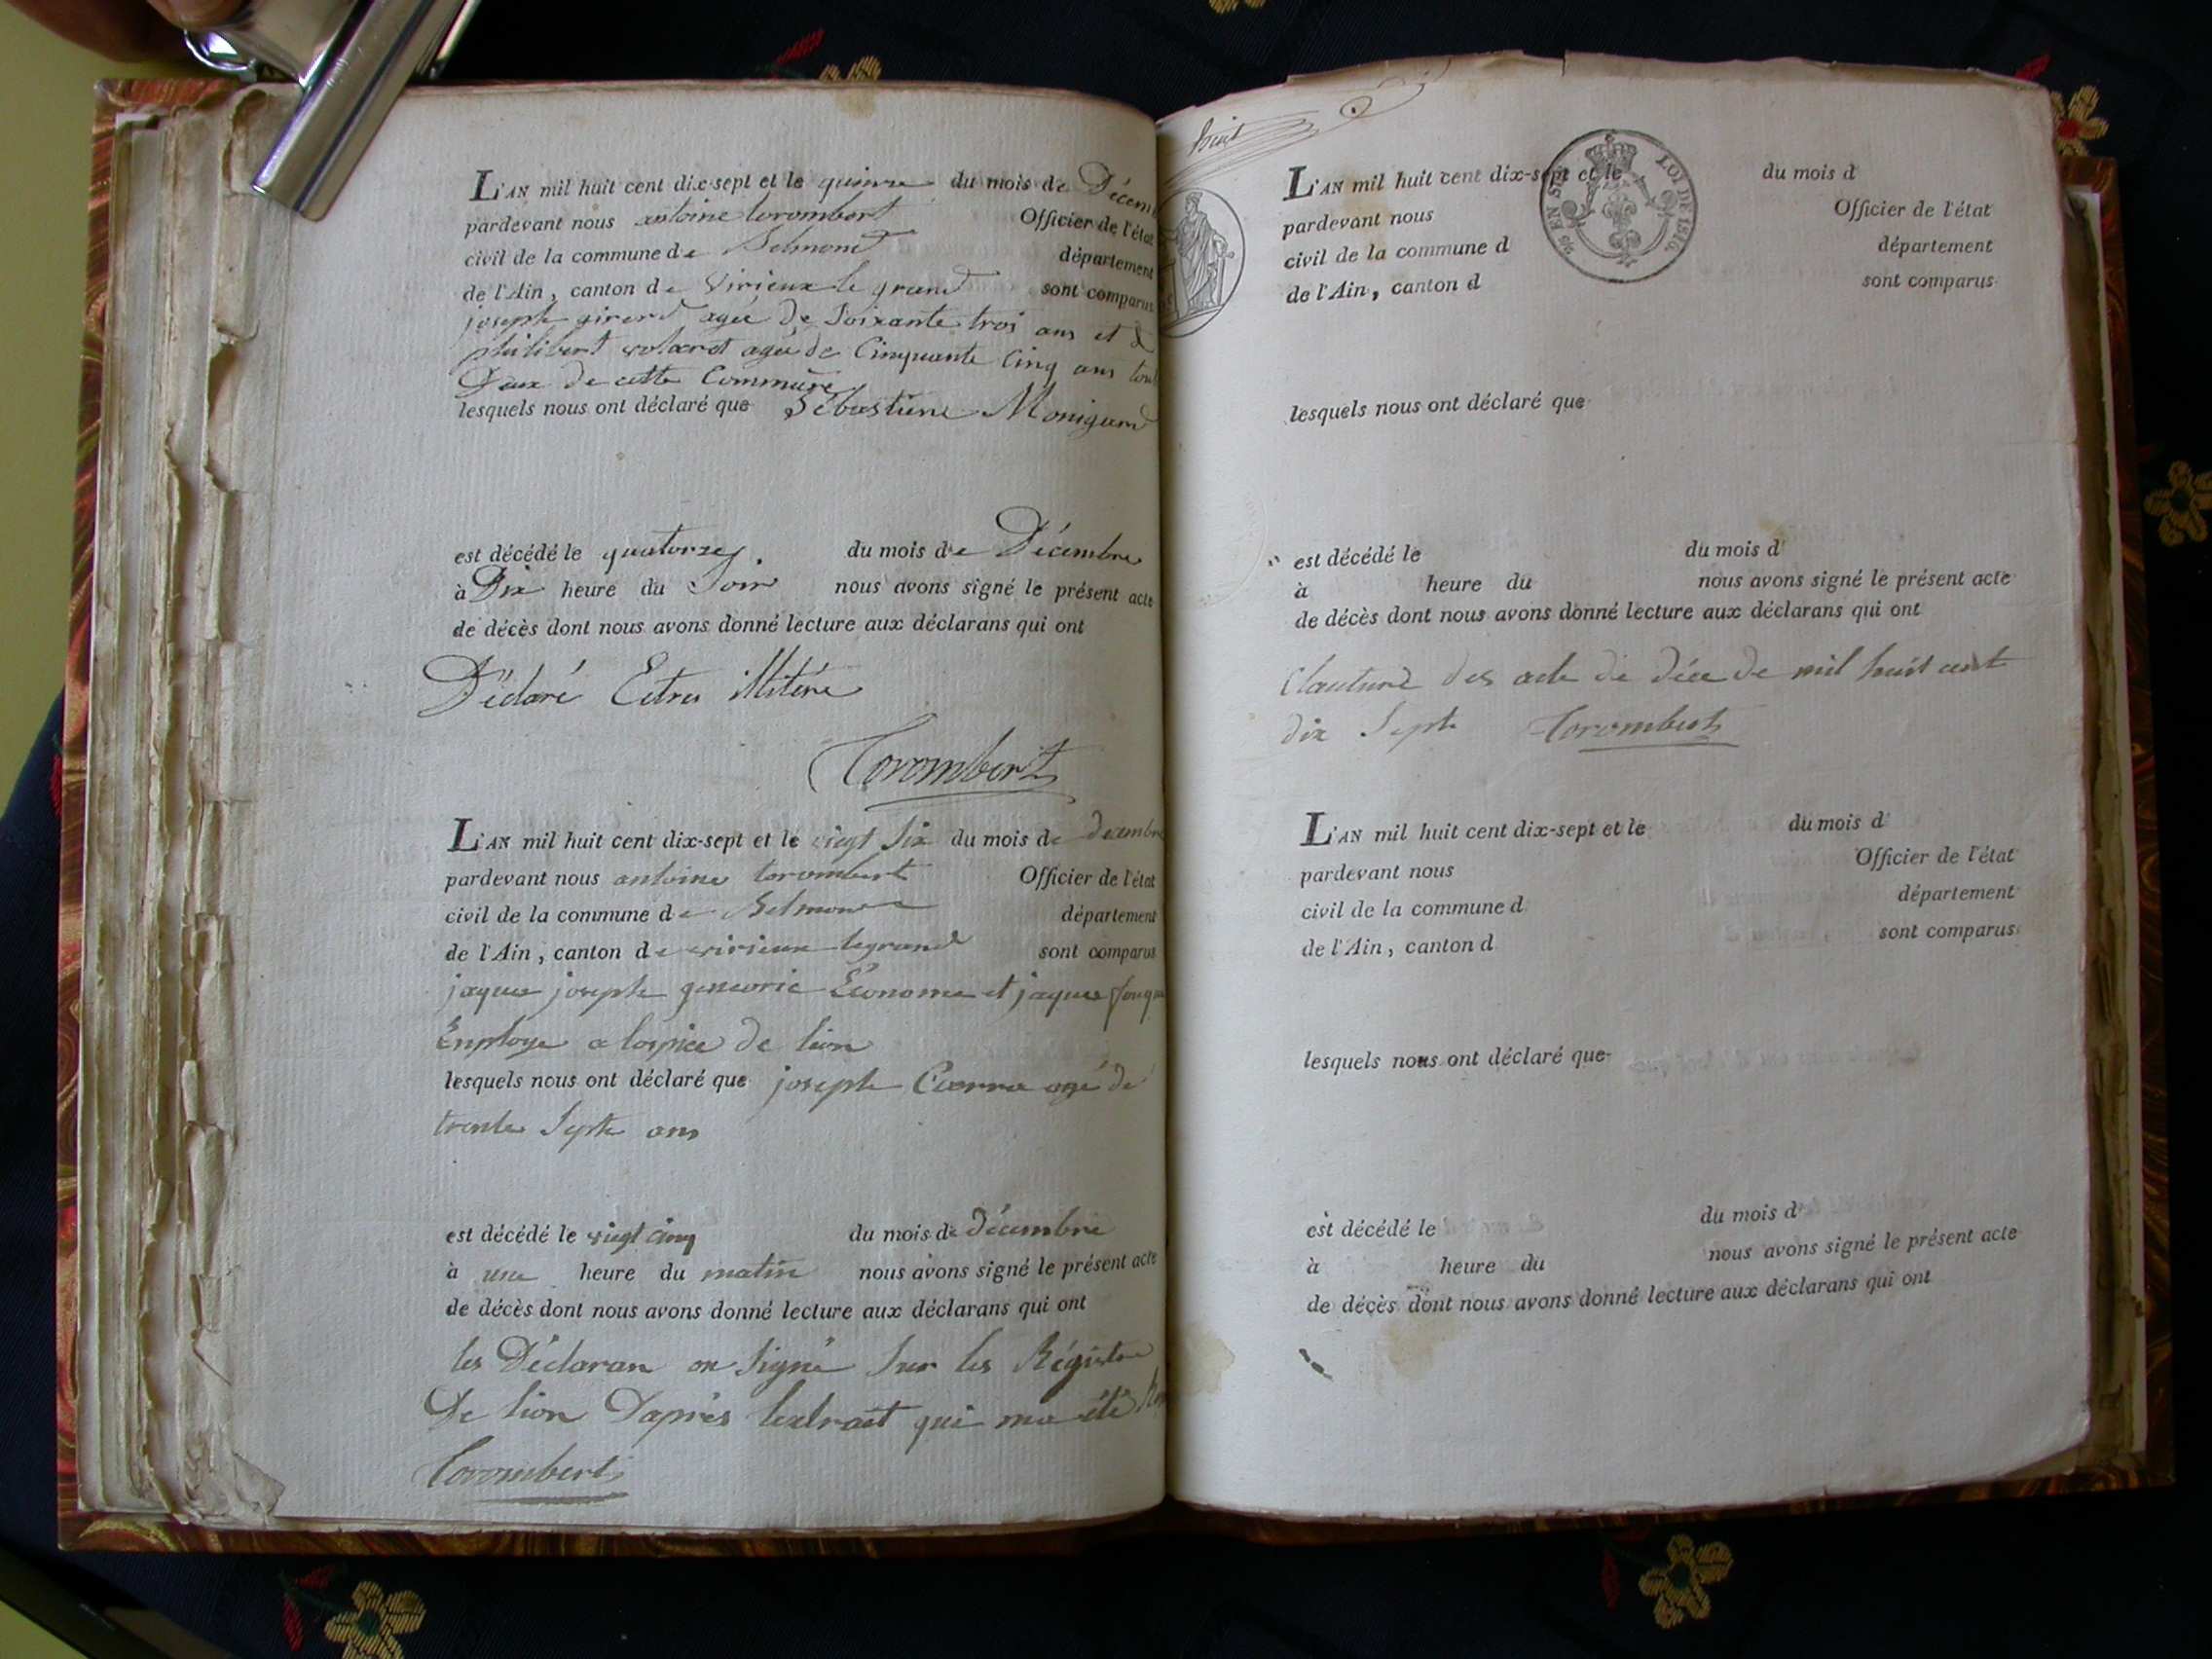 L'AN mil huit cent dix-sept et le quinze du mois de Décem
pardevant nous antoine torombert Officier de l'état
civil de la commune de Belmont département
de l'Ain, canton de Virieux le grand sont comparus
joseph girerd agée de Soixante trois ans et
philibert agée de Cinquante Cinq ans tout
Deux de cette Commune
lesquels nous ont déclaré que Sébastiene Monigand
est décédé le quatorze du mois de Décembre
à Dix heure du Soir nous avons signé le présent acte
de décès dont nous avons donné lecture aux déclarans qui ont
Déclaré Edtres illitéré
Torombert
L'AN mil huit cent dix-sept et le vingt Six du mois de décembre
pardevant nous antoine torombert Officier de l'état
civil de la commune de Belmont département
de l'Ain, canton de virieux legrand sont comparus
jaques joseph Economes et jaques
Employe a lospice de lion
lesquels nous ont déclaré que joseph Carra agé de
trente Septe ans
est décédé le vingt cinq du mois de décembre
à une heure du matin nous avons signé le présent acte
de décès dont nous avons donné lecture aux déclarans qui ont
les Déclaran on Signé Sur les Régistre
De lion Dapres lextrait qui ma été
Torombert
huit
L'AN mil huit cent dix-sept et le du mois d
pardevant nous Officier de l'état
civil de la commune d département
de l'Ain, canton d sont comparus
EN SUS
LOI DE 1816.
lesquels nous ont déclaré que
est décédé le du mois d
à heure du nous avons signé le présent acte
de décès dont nous avons donné lecture aux déclarans qui ont
Clauture des acte de déce de mil huit cent
dix Septe Torombert
L'AN mil huit cent dix-sept et le du mois d
pardevant nous Officier de l'état
civil de la commune d département
de l'Ain, canton d sont comparus
lesquels nous ont déclaré que
est décédé le du mois d
à heure du nous avons signé le présent acte
de décès dont nous avons donné lecture aux déclarans qui ont